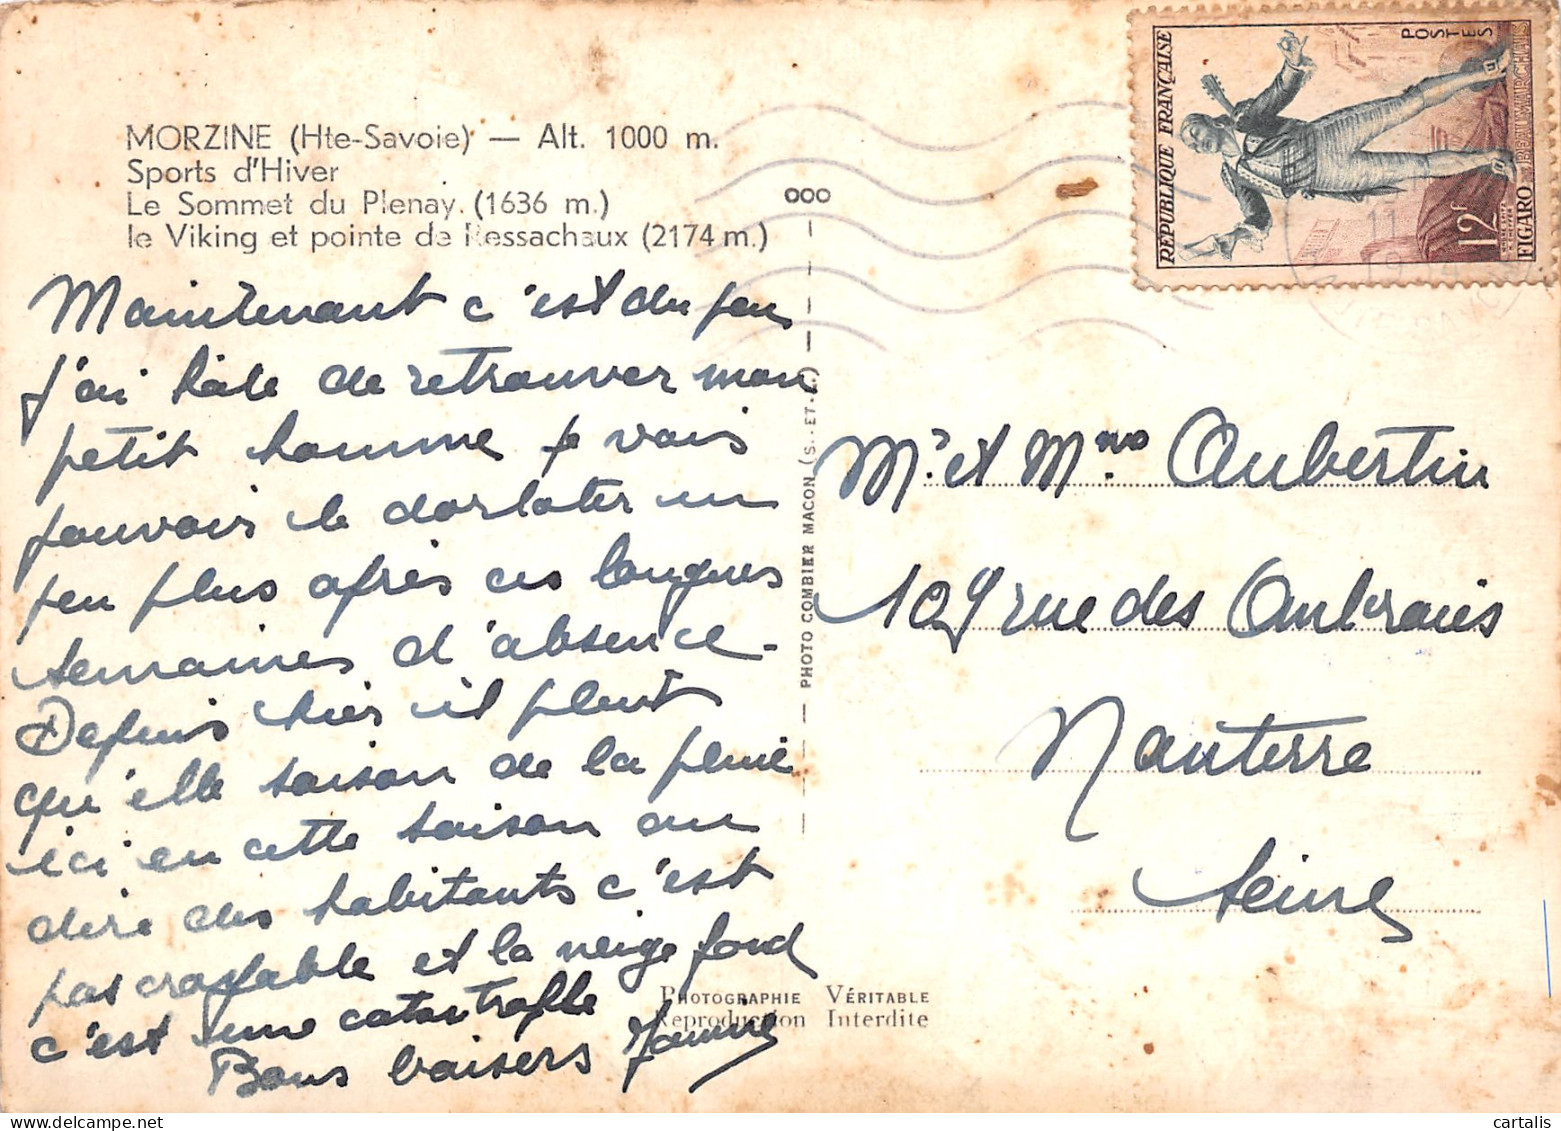 MORZINE (Hte-Savoie) — Alt. 1000 m.
Sports d'Hiver
Le Sommet du Plenay. (1636 m.)
le Viking et pointe de Ressachaux (2174 m.)
Maintenant c'est du feu
J'ai hâte de retrouver mon
petit homme je vais
pouvoir le dorloter un
peu plus après ces longues
semaines d'absence.
Depuis hier il pleut
qu'elle saison de la pluie
ici en cette saison au
dire des habitants c'est
pas croyable et la neige fond
c'est une catastrophe
Bons baisers
PHOTO COMBIER MACON (S.-ET-L.)
PHOTOGRAPHIE VÉRITABLE
Reproduction Interdite
RÉPUBLIQUE FRANÇAISE
POSTES
12F
FIGARO BEAUMARCHAIS
000
11
Mr et Mme Aubertin
109 rue des Aubraies
Nanterre
Seine
cartalis